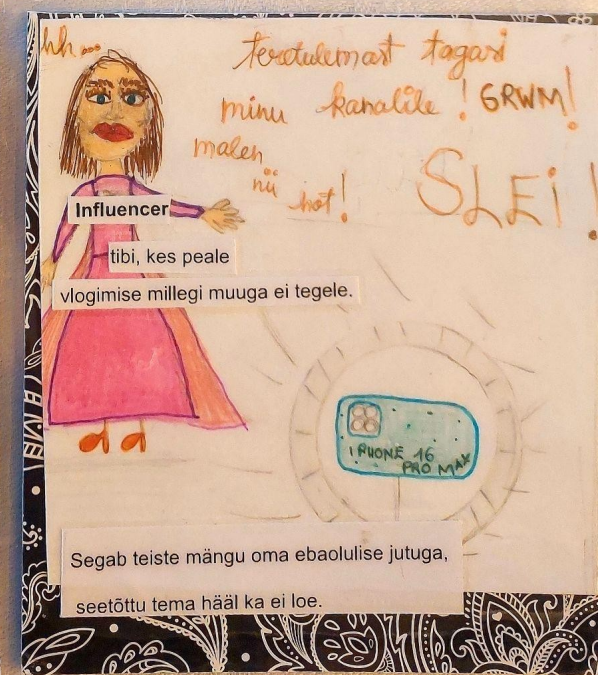 hh...
teretulemast tagasi
minu kanalile! GRWM!
malen
nii hot!
SLEI!
Influencer
tibi, kes peale
vlogimise millegi muuga ei tegele.
IPHONE 16
PRO MAX
Segab teiste mängu oma ebaolulise jutuga,
seetõttu tema hääl ka ei loe.